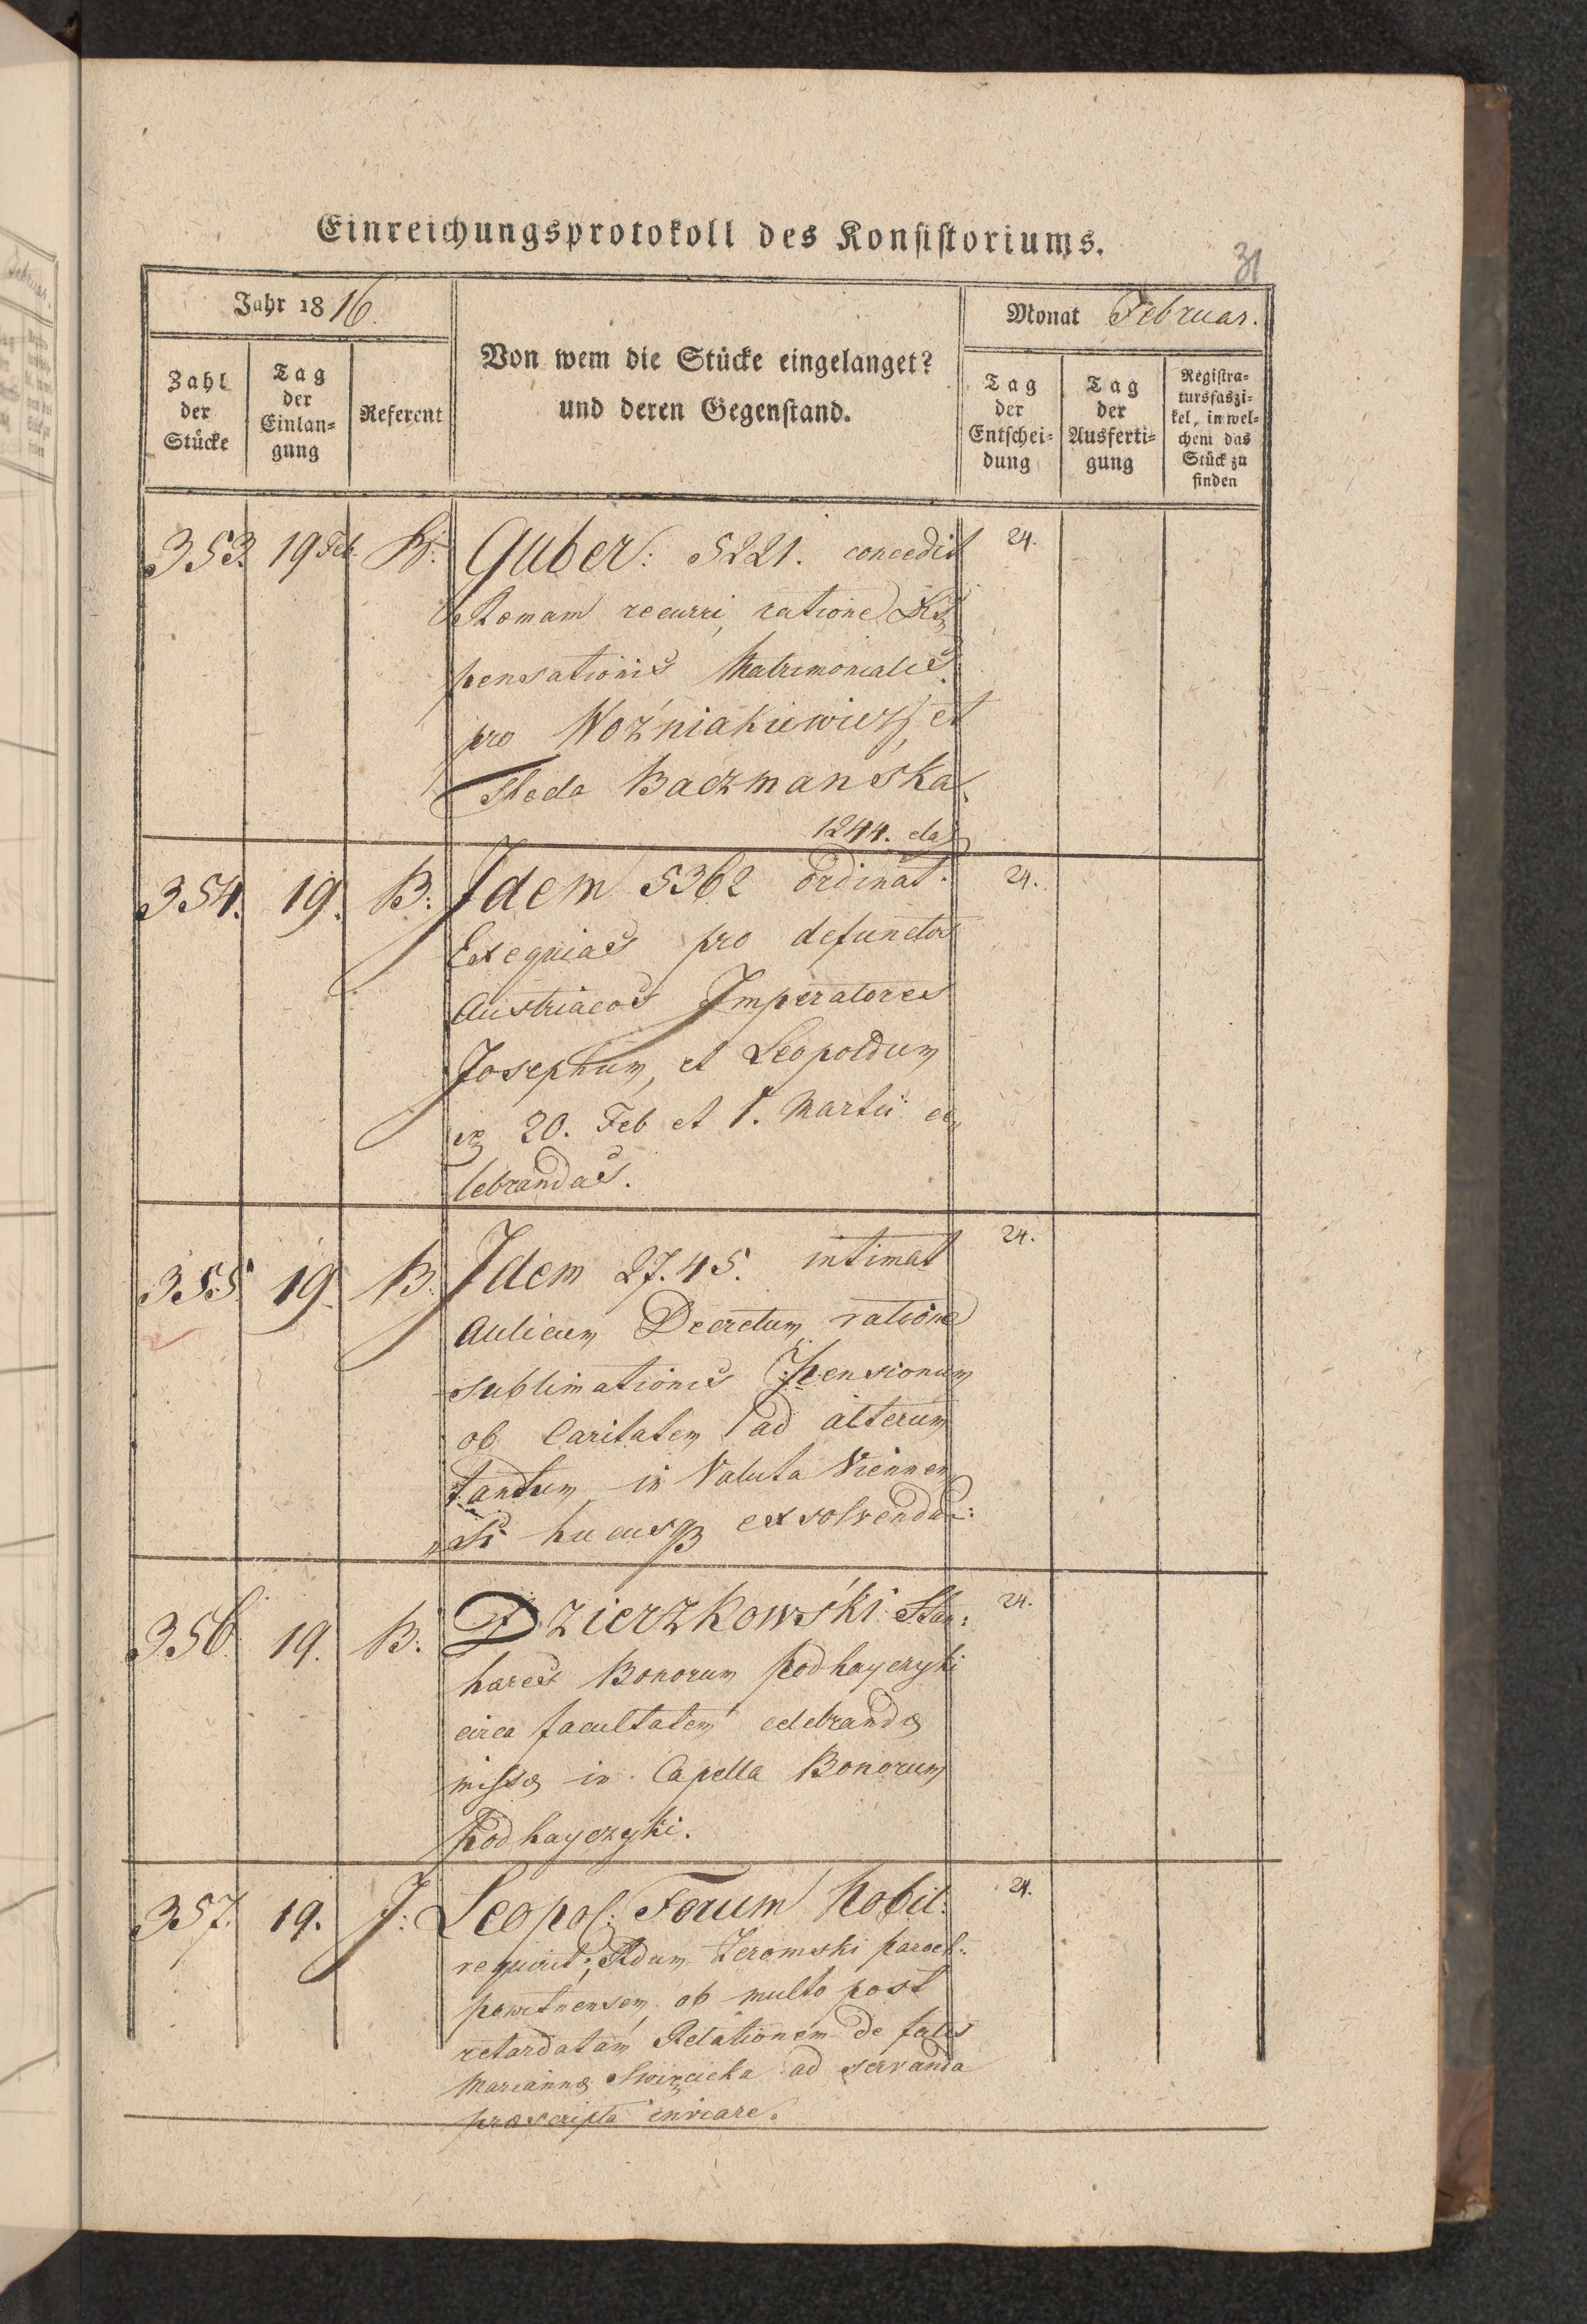 Einreichungsprotokoll des Konsistoriums.
31
Jahr 1816.
Von wem die Stücke eingelanget?
und deren Gegenstand.
Monat Februar.
Zahl
der
Stücke
Tag
der
Einlan=
gung
Referent
Tag
der
Entschei=
dung
Tag
der
Ausferti=
gung
Registra=
tursfaszi=
kel, in wel=
chem das
Stück zu
finden
353. 19 Feb. B. Guber: 5221. concedit 24.
Romam recurri, ratione Dis
pensationis Matrimonialis.
pro Woźniakiewicz, et
Theda Baczmańska.
1244.
354. 19. B. Idem 5362 ordinat. 24.
Exequias pro defunctos
Austriacos Imperatores
Josephum, et Leopoldum
20. Feb et 1. Martii ce
lebrandas.
355. 19. B. Idem 27.45. intimat 24.
Aulicum Decretum ratione
sublimationis Pensionum
ob Caritatem ad alterum
tantum in Valuta Viennen
si hucusq exsolvendas:
356. 19. B. Dzierzkowski 24.
hares Bonorum Podhayczyki
circa facultatem celebrandæ
missæ in Capella Bonorum
Podhayczyki.
357. 19. J: Leopol: Forum Nobil: 24.
requirit; Adum Zeromski paroch:
powitnensem, ob multo post
retardatam Relationem de fatis
Mariannæ Swięcicka ad servanda
præscripta inviare.